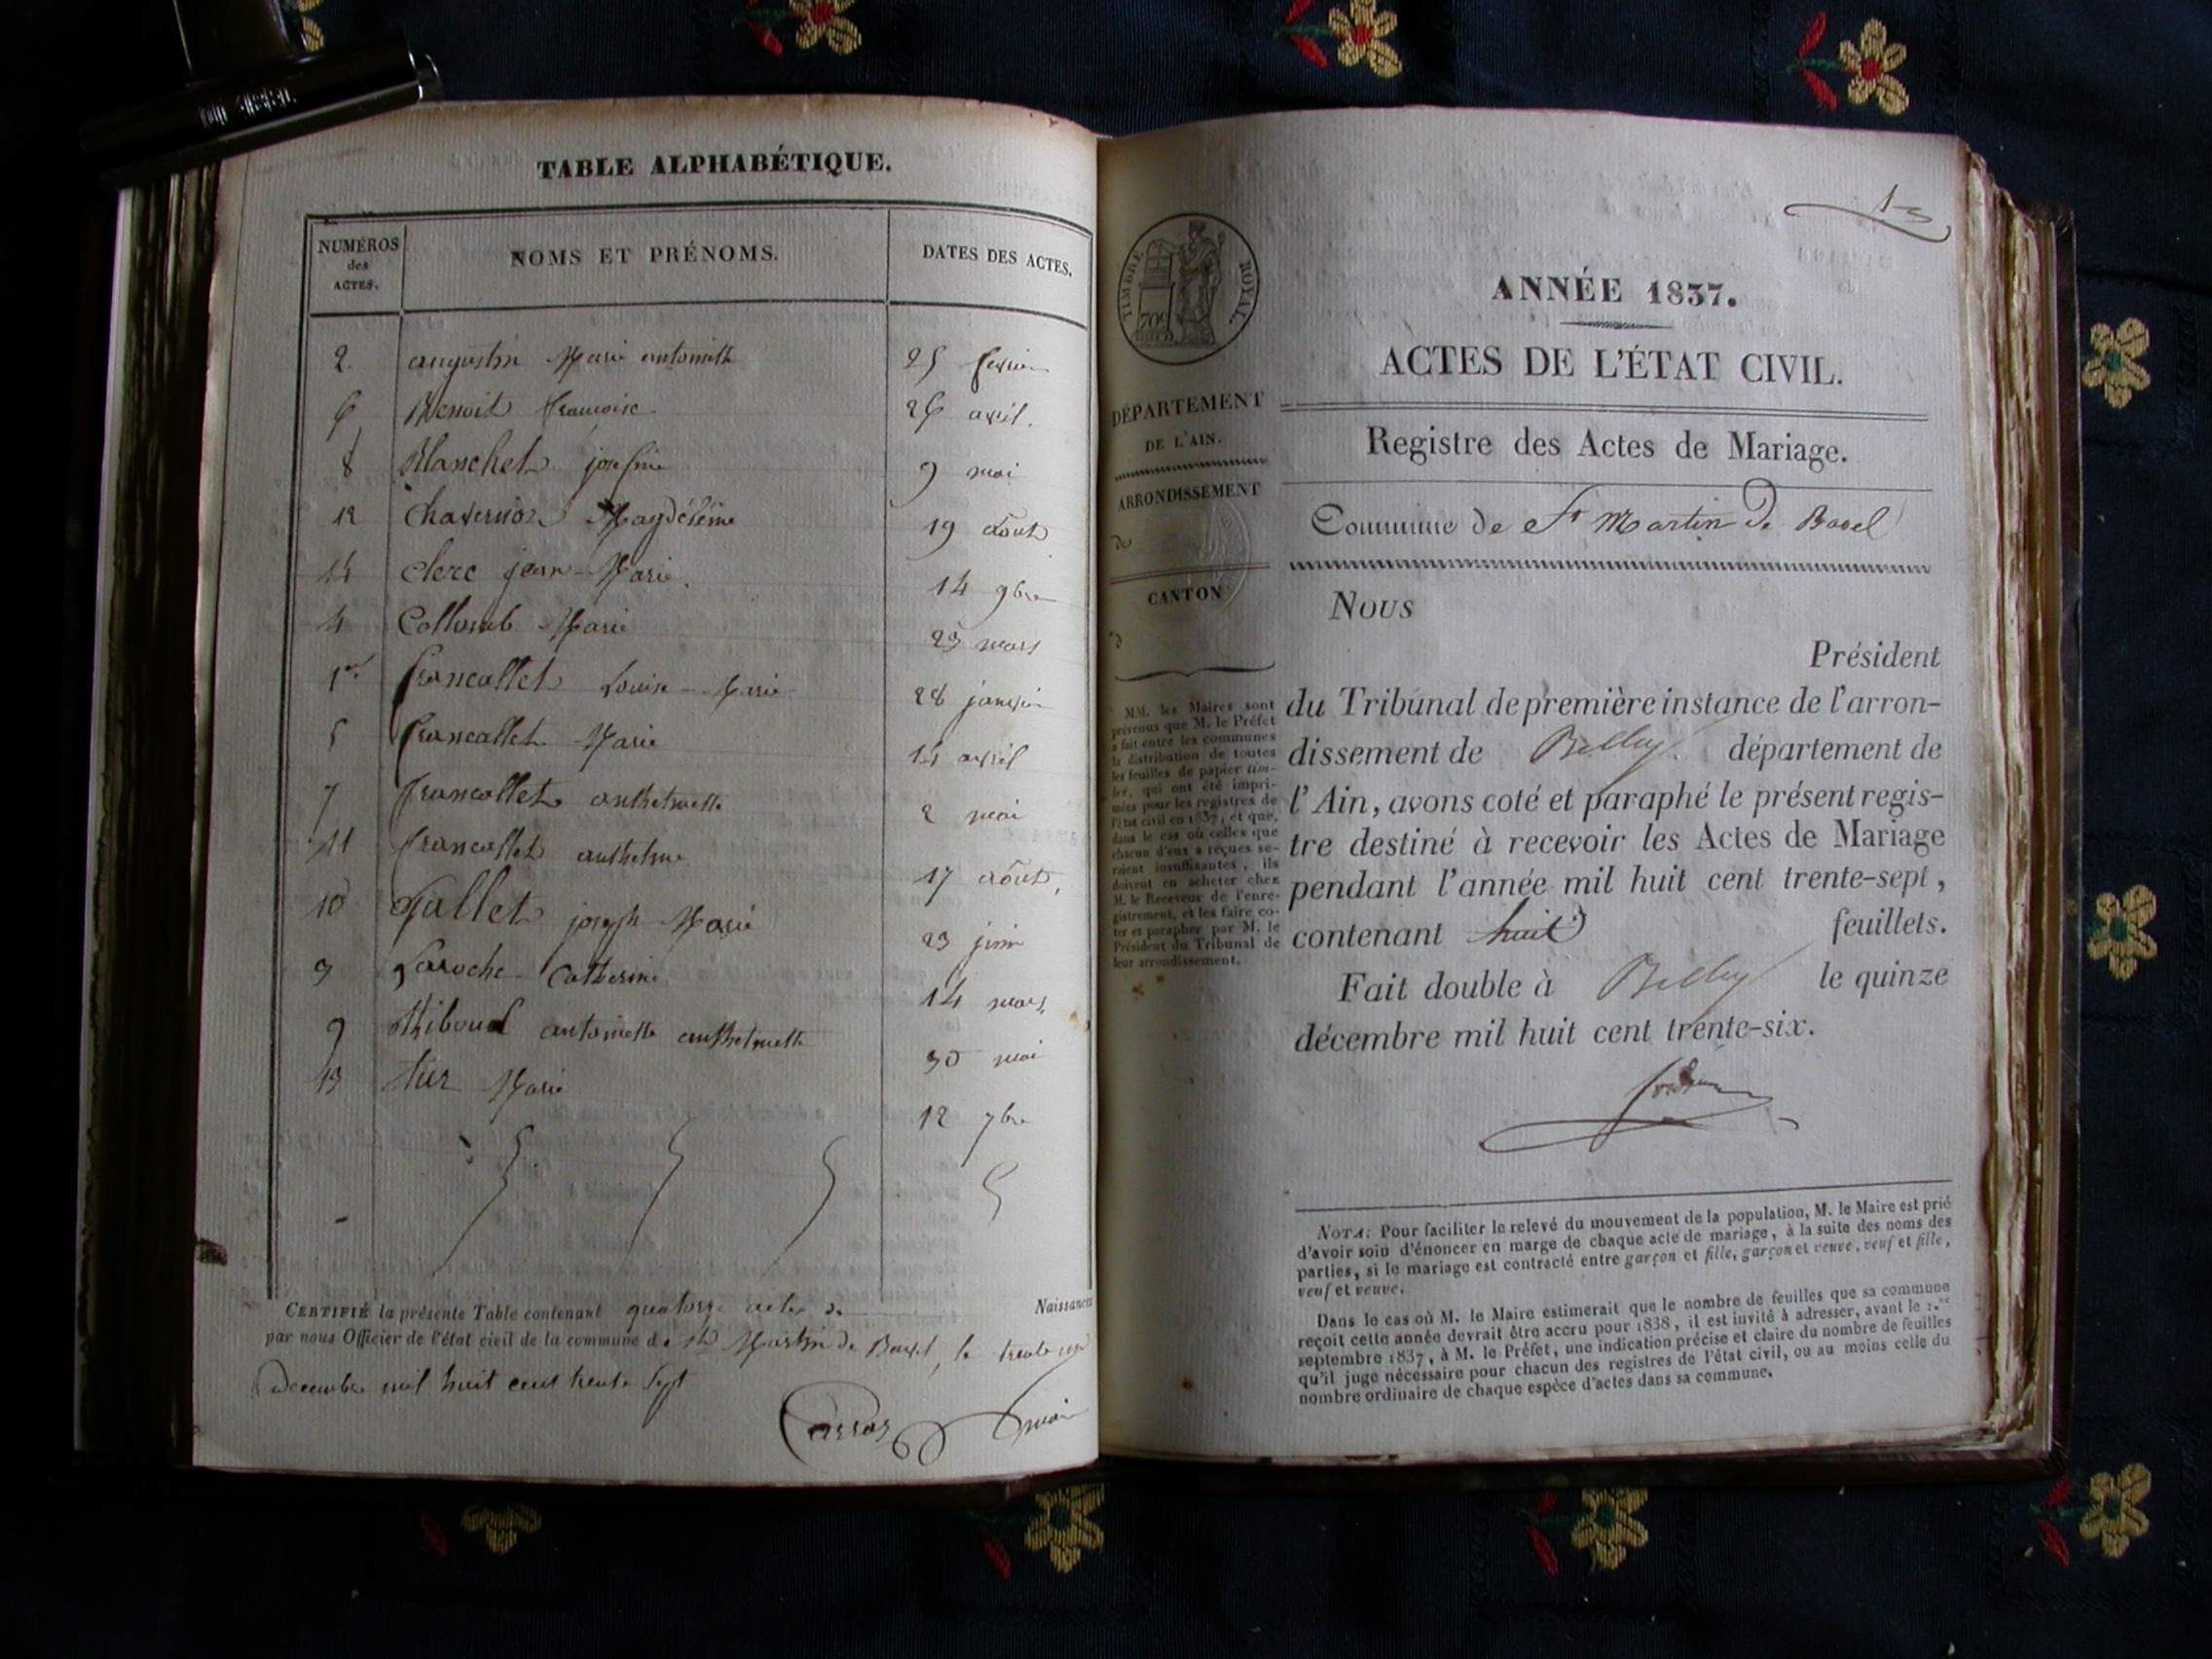 TABLE ALPHABÉTIQUE.
NUMÉROS des ACTES. NOMS ET PRÉNOMS. DATES DES ACTES.
2. augustin Marie antoinette 25 fevrier
6 Benoit francoise 26 avril.
8 Blanchet josefine 9 mai
12 Magdeleine 19 août
14 Clerc jean-Marie. 14 9bre
4 Collomb Marie 23 mars
1er francallet Louise-Marie 28 janvier
5 francallet Marie 14 avril
7 francallet anthelmette 2 mai
11 francallet anthelme 17 août,
10 Gallet joseph-Marie 23 juin
Laroche Catherine 14 mars,
9 Thiboud antoinette anthelmette 30 mai
13 Marie 12 7bre
CERTIFIÉ la présente Table contenant quatorze actes de Naissances
par nous Officier de l'état civil de la commune de St Martin de Bavel, le trente un
decembre mil huit cent trente sept
maire
13
TIMBRE ROYAL.
70c
ANNÉE 1837.
ACTES DE L'ÉTAT CIVIL.
Registre des Actes de Mariage.
Commune de St Martin de Bavel
DÉPARTEMENT
DE L'AIN.
ARRONDISSEMENT
de
CANTON
d
MM. les Maires sont
prévenus que M. le Préfet
a fait entre les communes
la distribution de toutes
les feuilles de papier tim-
bré, qui ont été impri-
mées pour les registres de
l'état civil en 1837, et que,
dans le cas où celles que
chacun d'eux a reçues se-
raient insuffisantes, ils
doivent en acheter chez
M. le Receveur de l'enre-
gistrement, et les faire co-
ter et parapher par M. le
Président du Tribunal de
leur arrondissement.
Nous
Président
du Tribunal de première instance de l'arron-
dissement de Belley département de
l'Ain, avons coté et paraphé le présent regis-
tre destiné à recevoir les Actes de Mariage
pendant l'année mil huit cent trente-sept,
contenant huit feuillets.
Fait double à Belley le quinze
décembre mil huit cent trente-six.
NOTA: Pour faciliter le relevé du mouvement de la population, M. le Maire est prié
d'avoir soin d'énoncer en marge de chaque acte de mariage, à la suite des noms des
parties, si le mariage est contracté entre garçon et fille, garçon et veuve, veuf et fille,
veuf et veuve.
Dans le cas où M. le Maire estimerait que le nombre de feuilles que sa commune
reçoit cette année devrait être accru pour 1838, il est invité à adresser, avant le 1.er
septembre 1837, à M. le Préfet, une indication précise et claire du nombre de feuilles
qu'il juge nécessaire pour chacun des registres de l'état civil, ou au moins celle du
nombre ordinaire de chaque espèce d'actes dans sa commune.